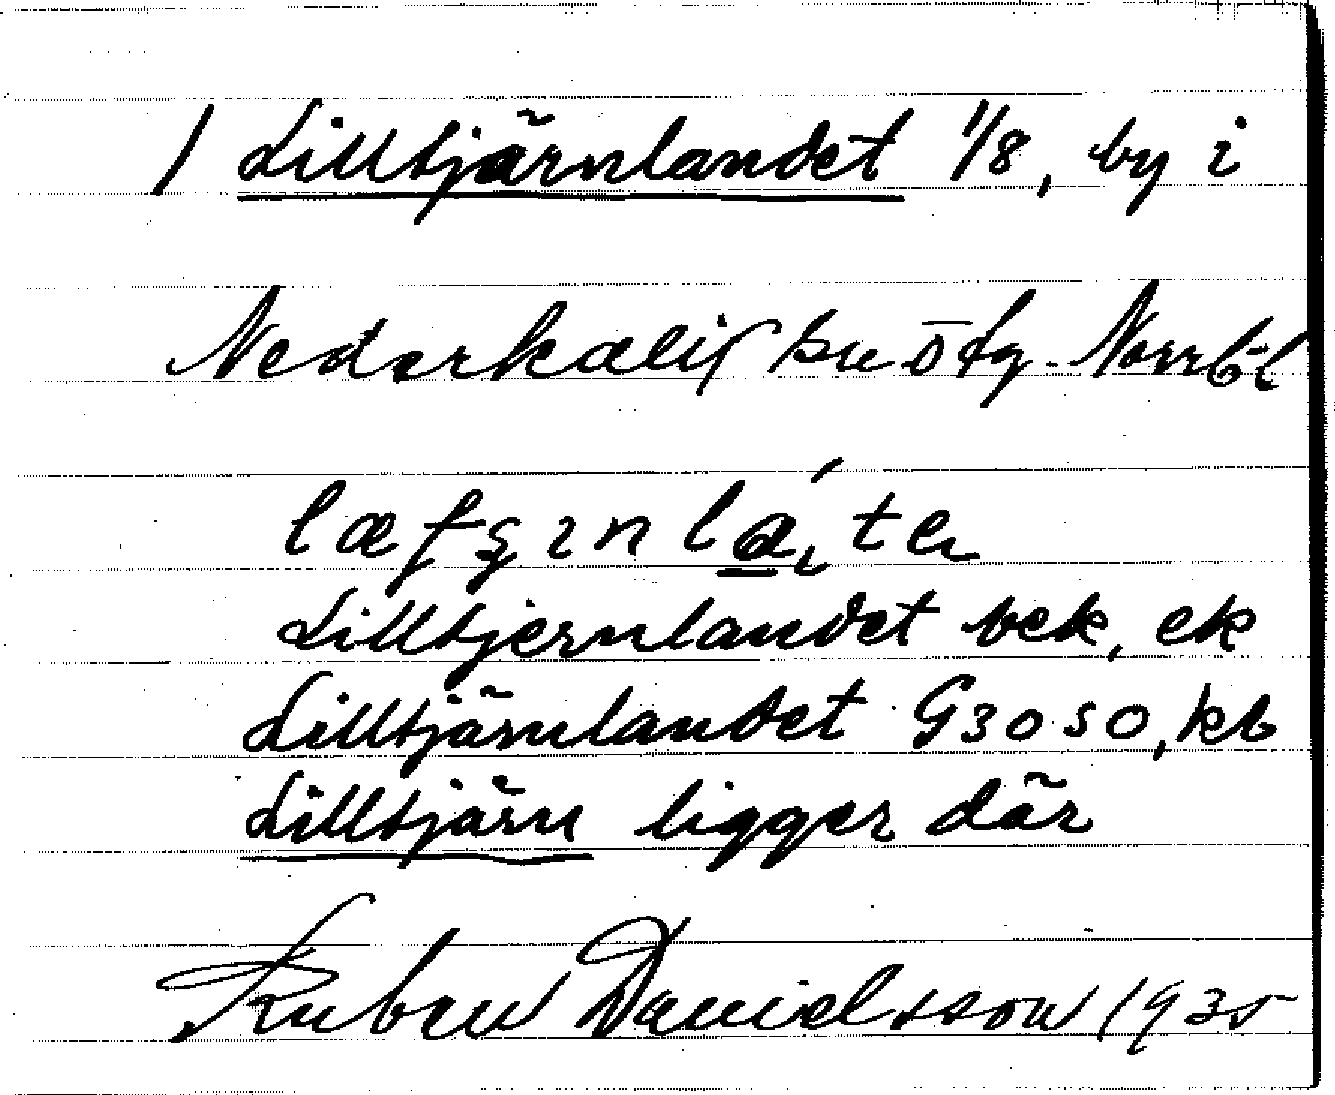 1 Lilltjärnlandet 1/8, by i
Nederkalix sn Ö fg. Norrb l
Lilltjernlandet bek, ek
Lilltjärnlandet G3050, kb
Lilltjärn ligger där
Ruben Danielsson 1935